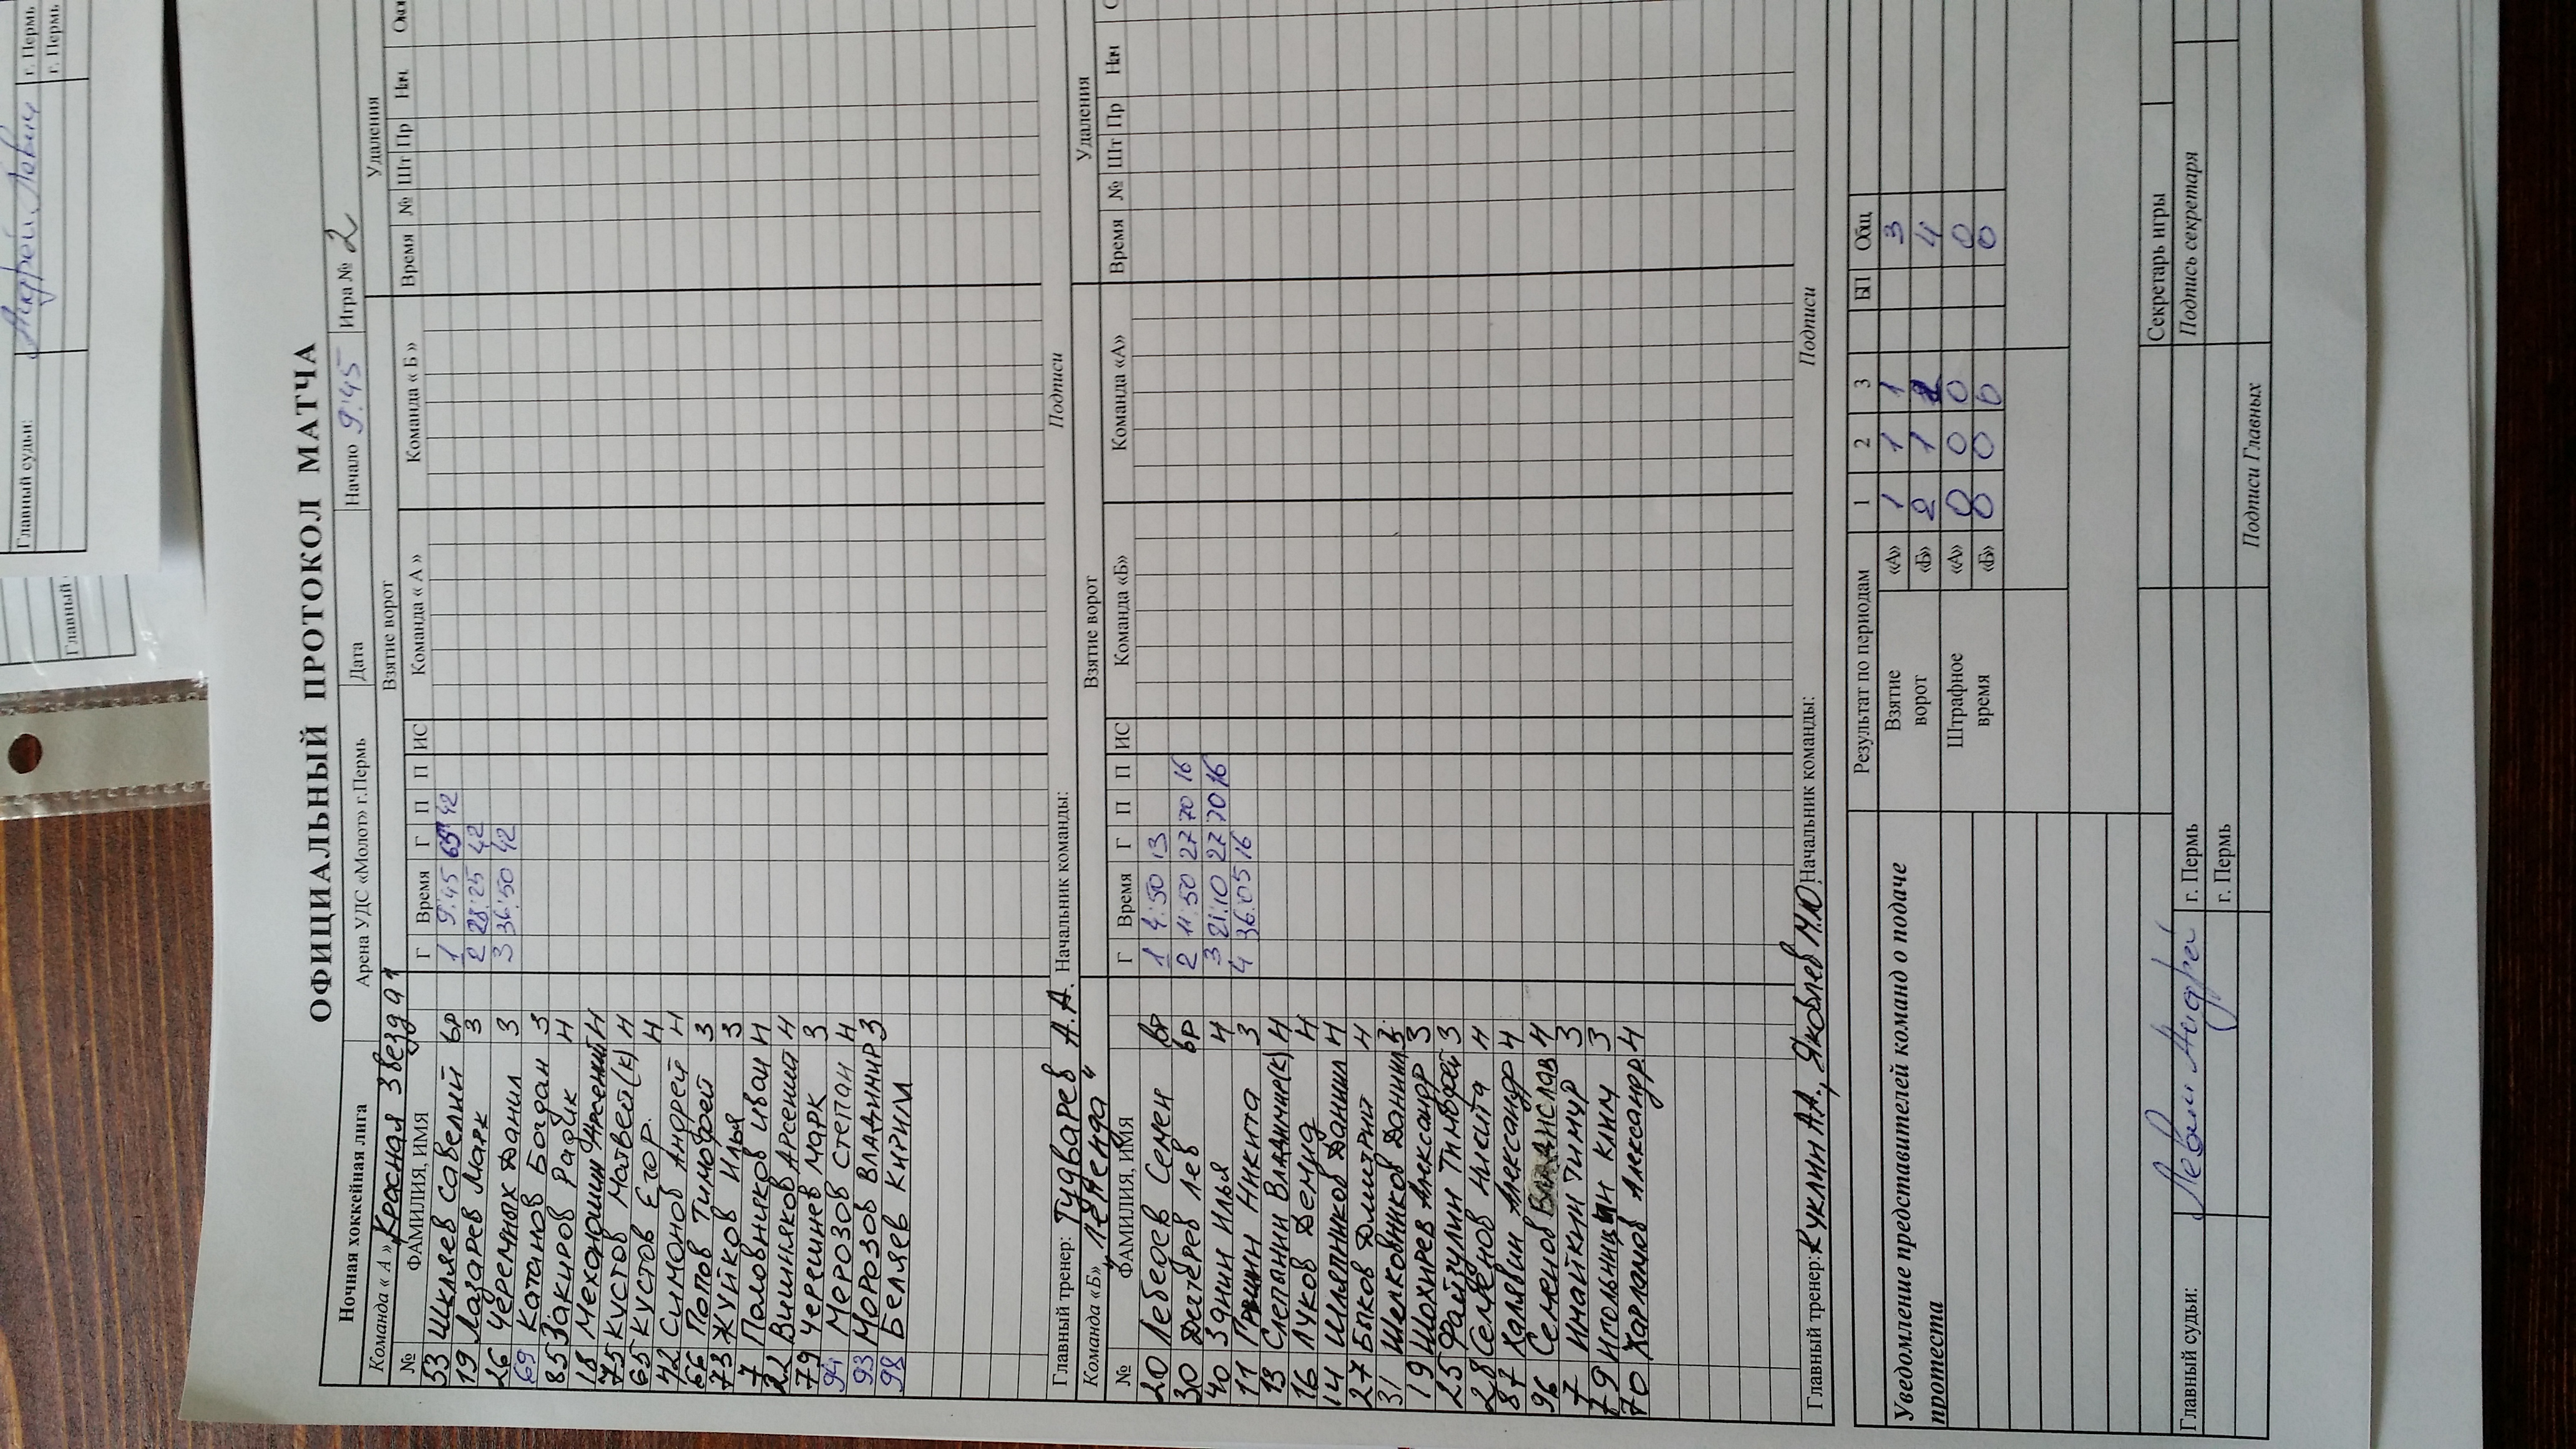 Главный судьи:
Андрей Левин
г. Пермь
г. Пермь
Главный
ОФИЦИАЛЬНЫЙ ПРОТОКОЛ МАТЧА
Ночная хоккейная лига Арена УДС «Молот» г.Пермь Дата Начало 9:45 Игра № 2
Команда « А » "Красная звезда" Взятие ворот Удаления
№ ФАМИЛИЯ, ИМЯ Г Время Г П П ИС Команда « А » Команда « Б » Время № Шт Пр Нач Око
53 Шкляев Савелий вр 1 9:45 65 42
19 Лазарев Марк З 2 28:25 42
26 Черемных Данил З 3 36:50 42
69 Катаинов Богдан З
85 Закиров Радик Н
18 Мехоношин Арсений Н
75 Кустов Матвей (к) Н
65 Кустов Егор. Н
42 Симонов Андрей Н
66 Попов Тимофей З
73 Жуйков Илья З
7 Половников Иван Н
22 Вишняков Арсений Н
79 Черешнев Марк З
94 Морозов Степан Н
93 Морозов Владимир З
98 Беляев Кирилл
Главный тренер: Гудварев А.А. Начальник команды: Подписи
Команда «Б» "Легенда" Взятие ворот Удаления
№ ФАМИЛИЯ, ИМЯ Г Время Г П П ИС Команда «Б» Команда «А» Время № Шт Пр Нач
20 Лебедев Семен вр 1 4:50 13
30 Дегтерев Лев вр 2 11:50 27 70 16
40 Занин Илья Н 3 21:10 27 70 16
11 Гришин Никита З 4 36:05 16
13 Слепанин Владимир(к) Н
16 Луков Демид Н
14 Шляпников Даниил Н
27 Быков Дмитрий Н
31 Шелковников Даниил З
19 Шохирев Александр З
25 Файзулин Тимофей З
28 Семенов Никита Н
87 Халявин Александр Н
96 Семенов Владислав Н
7 Имайкин Тимур З
79 Игольницын Клим З
70 Харламов Александр Н
Главный тренер: Куклин А.А., Яковлев М.Ю. Начальник команды: Подписи
Результат по периодам 1 2 3 БП Общ
Взятие ворот «А» 1 1 1 3
«Б» 2 1 1 4
Штрафное время «А» 0 0 0 0
«Б» 0 0 0 0
Уведомление представителей команд о подаче протеста
Секретарь игры
Главный судьи: Левин Андрей г. Пермь Подпись секретаря
г. Пермь
Подписи Главных